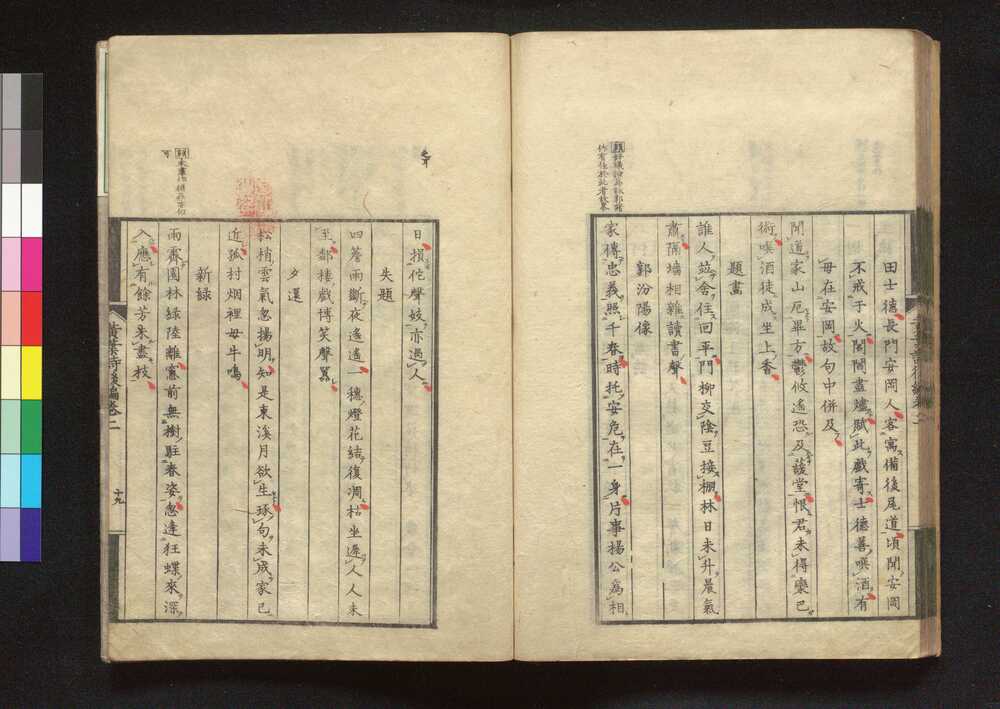 田士德長門安岡人客寓備後尾道頃聞安岡
不戒于火閭閻盡爐賦此戲寄士德善噀酒有
母在安岡故句中併及
聞道家山厄畢方鬱攸遙恐及諼堂恨君未得欒巴
術噀酒徒成坐上香
題畫
誰人竝舍住回平門柳交陰豆接棚林日未升晨氣
肅隔墻相雜讀書聲
郭汾陽像
家傳忠義照千春時托安危在一身片事楊公為相
日損佗聲妓亦過人
失題
四簷雨斷夜遙遙一穗燈花結復凋枯坐遲人人未
至鄰樓戲博笑聲囂
夕還
松梢雲氣忽揚明知是東溪月欲生琢句未成家已
近孤村烟裡母牛鳴
新綠
雨霽園林綠陸離窻前無樹駐春姿忽逢狂蝶來深
入應有餘芳未盡枝
黃葉詩後編卷二
十九